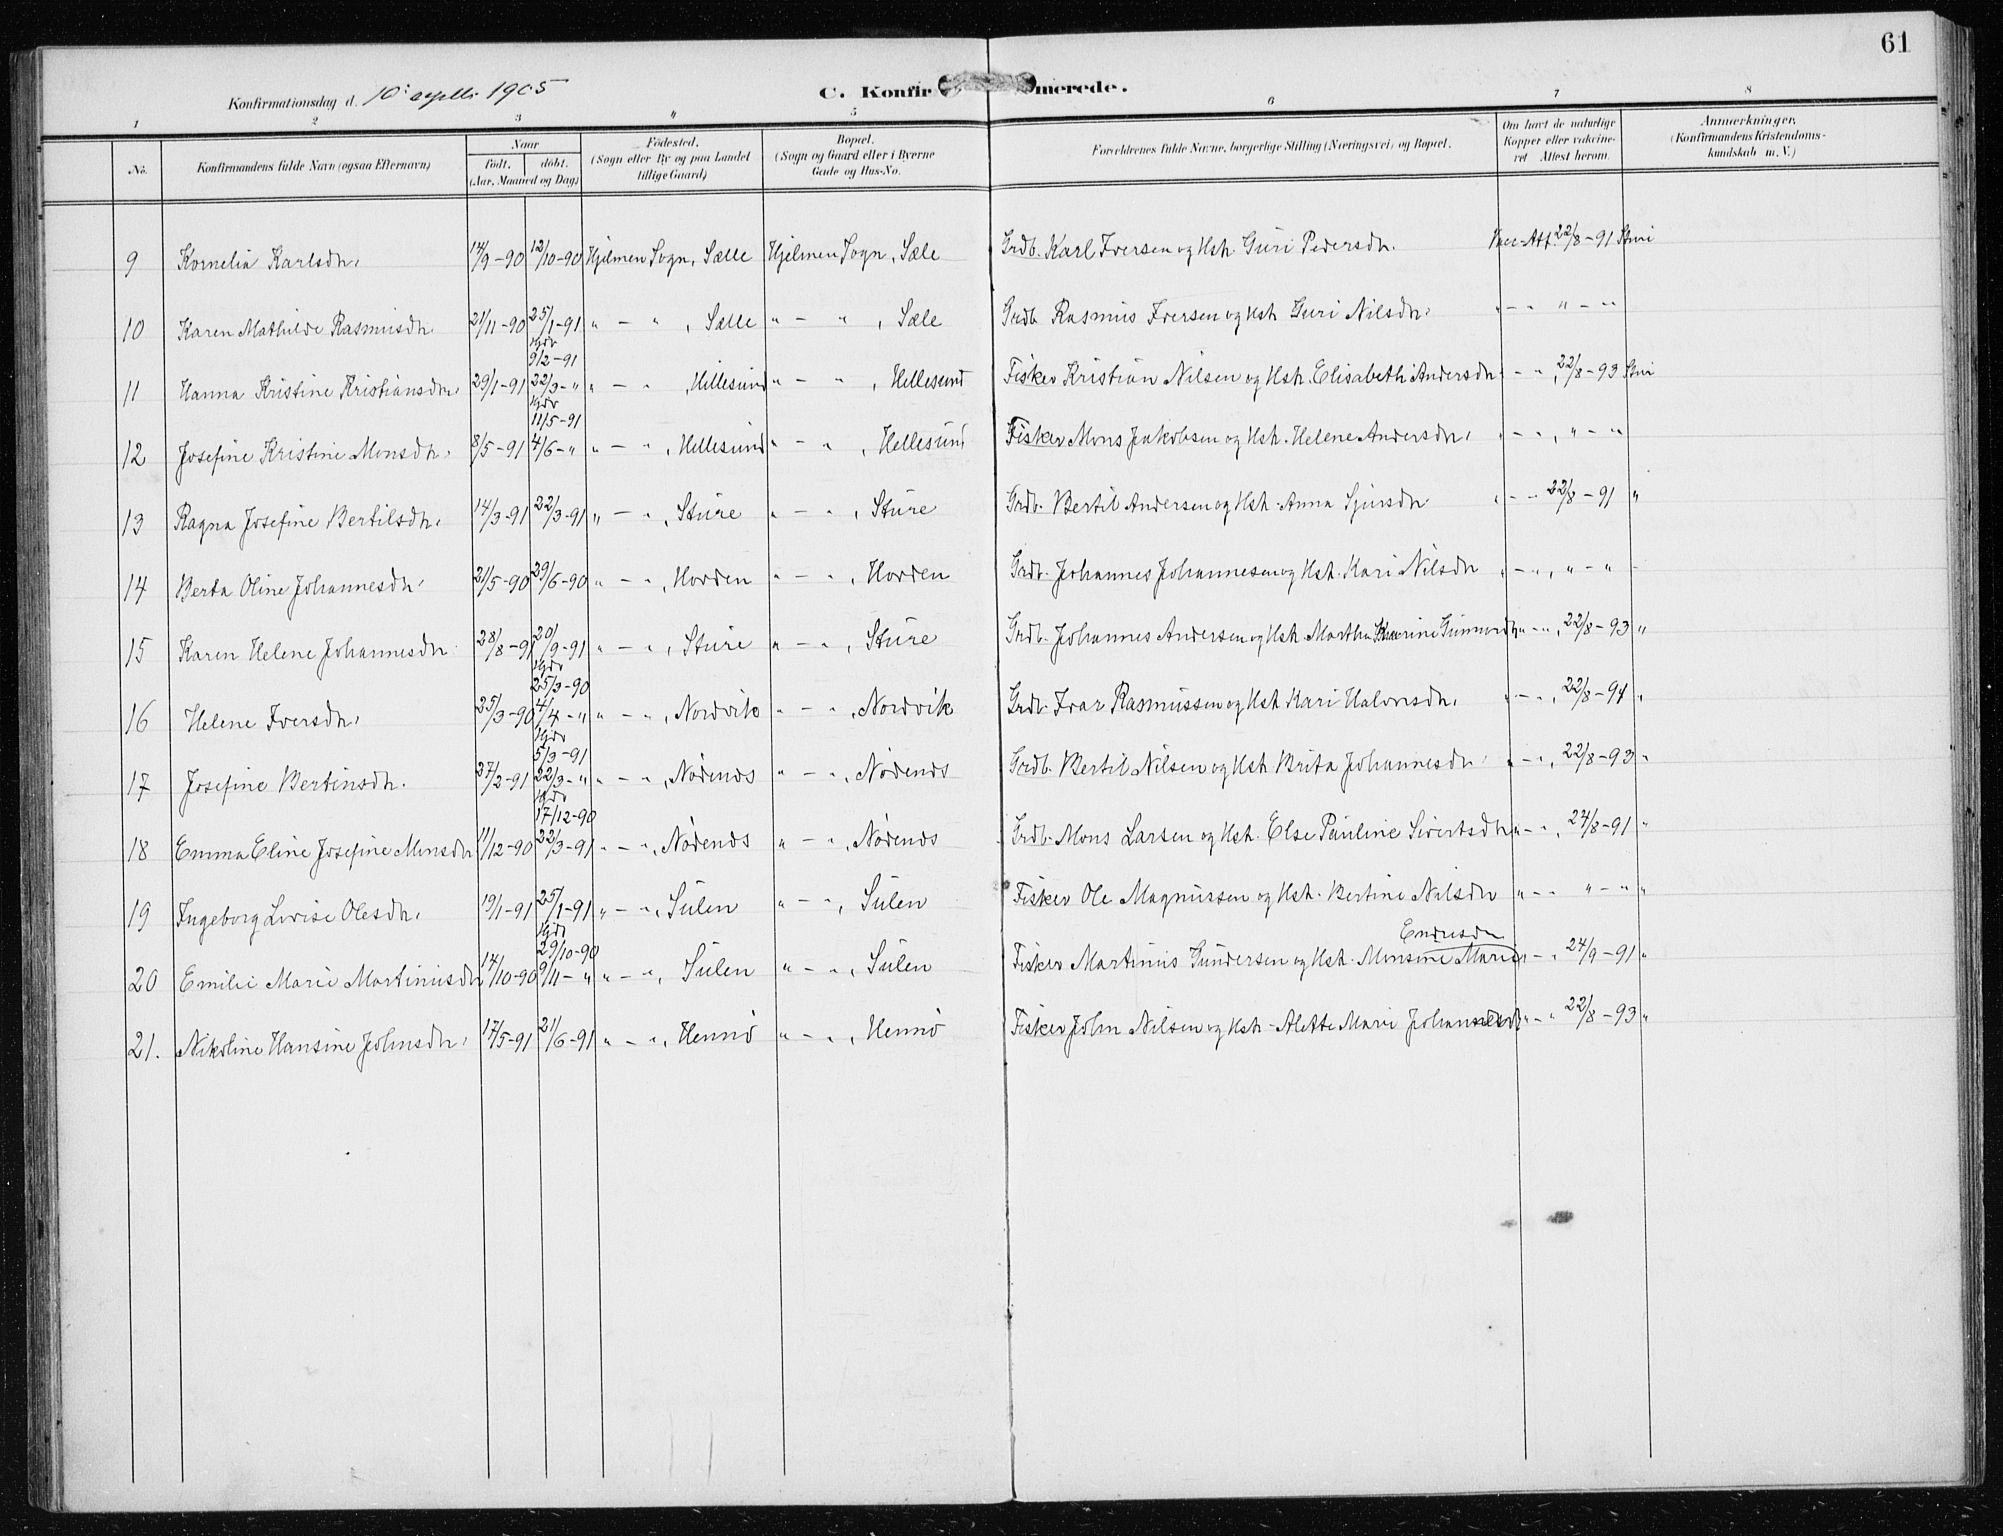 61
Konfirmationsdag d. 10' 1905 C. Konfirmerede.
1 2 3 " 5 6 7 8
No. Konfirmandens fulde Navn (ogsaa Efternavn) Naar Födested. Bopæl. Forældrenes fulde Navne, borgerlige Stilling (Næringsvei) og Bopæl. Om havt de naturlige Anmærkninger.
födt. döbt. (Sogn eller By og paa Landet (Sogn og Gaard eller i Byerne Kopper eller vakcine- (Konfirmandens Kristendoms-
(Aar, Maaned og Dag) tillige Gaard) Gade og Hus-No. ret Attest herom. kundskab m. V.)
9 Kornelia Karlsdtr. 14/9-90 12/10-90 Hjelmen Sogn, Sælle Hjelmen Sogn, Sæle Grdb. Karl Iversen og Hst. Guri Pedersdtr. Vac-Att. 22/8-91
10 Karen Mathilde Rasmusdtr. 21/11-90 25/1-91 " - " , Sælle " - " , Sæle Grdb. Rasmus Iversen og Hst. Guri Nilsdtr. " - " " - "
hjdr 9/2-91
11 Hanna Kristine Kristiansdtr. 29/1-91 22/3-" " - " , Hellesund " - " , Hellesund Fisker Kristian Nilsen og Hst. Elisabeth Andersdtr. " - " , 22/8-93
hjdr 11/5-91
12 Josefine Kristine Monsdtr. 8/5-91 4/6-" " - " , Hellesund " - " , Hellesund Fisker Mons Jakobsen og Hst. Helene Andersdtr. " - " , " - "
13 Ragna Josefine Bertilsdtr. 14/3-91 22/3-91 " - " , Sture " - " , Sture Grdb. Bertil Andersen og Hst. Anna Sjursdtr. " - " 22/8-91 "
14 Berta Oline Johannesdtr. 21/5-90 29/6-90 " - " , Horden " - " , Horden Grdb. Johannes Johannesen og Hst. Kari Nilsdtr. " - " , " - "
15 Karen Helene Johannesdtr. 28/8-91 20/9-91 " - " , Sture " - " , Sture Grdb. Johannes Andersen og Hst. Martha " - " , 22/8-93 "
hjdr 25/3-90
16 Helene Iversdtr. 25/3-90 4/4-" " - " , Nordvik " - " , Nordvik Grdb. Ivar Rasmussen og Hst. Kari Halvorsdtr. " - " , 22/8-94 "
hjdr 5/3-91
17 Josefine Bertinsdtr. 27/2-91 22/3-" " - " , Nödends " - " , Nödends Grdb. Bertil Nilsen og Hst. Brita Johannesdtr. " - " , 22/8-93 "
hjdr 17/12-90
18 Emma Eline Josefine Monsdtr. 11/12-90 22/3-91 " - " , Nödends " - " , Nödends Grdb. Mons Larsen og Hst. Else Pauline Sivertsdtr. " - " , 24/8-91 "
19 Ingeborg Lovise Olesdtr. 19/1-91 25/1-91 " - " , Sulen " - " , Sulen Fisker Ole Magnussen og Hst. Bertine Nilsdtr. " - " " - " "
hjdr 29/10-90 Endresdtr
20 Emilie Marie Martinusdtr. 14/10-90 9/11-" " - " , Sulen " - " , Sulen Fisker Martinus Gundersen og Hst. Monsine Marie " - " 24/9-91 "
21. Nikoline Hansine Johnsdtr. 17/5-91 21/6-91 " - " , Hernö " - " , Hernö Fisker John Nilsen og Hst. Alette Marie Johannesdtr. " - " 22/8-93 "